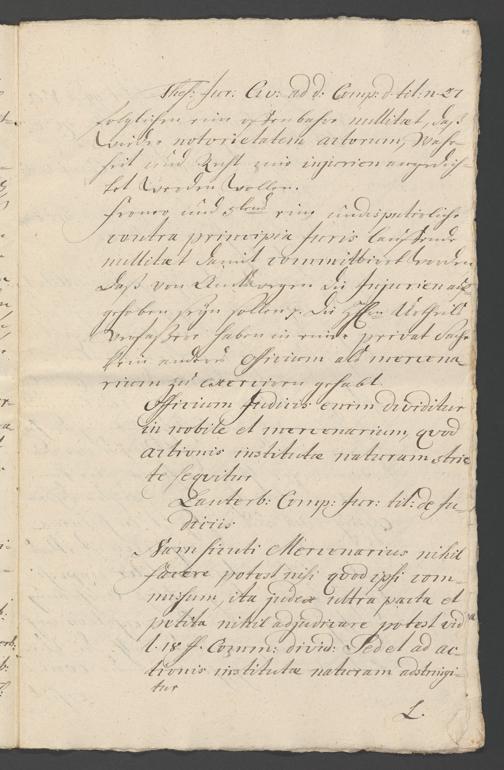 Thes: Jur: Civ: ad d: Comp: d. tit: n. 21
folglichen eine offenbahre nullitæt, daß
wieder notorietatem actorum, Wahr-
heit und Recht mir injurien angedich-
tet werden wollen.
Ferner und 2tens eine indisputirliche
contra principia Juris lauffende
nullitæt damit committirt worden
daß von Ambts wegen die Injurien auf-
gehoben seyn sollen. Die Hhen Urtheils
Verfaßere haben in einer privat Sache
kein anders Officium als mercena
rium zu exerciren gehabt.
Officium Judicis enim dividitur
in nobile et mercenarium, quod
actionis institutæ naturam stric
te sequitur
Lauterb: Comp: Jur: tit: de Ju-
diciis
Nam sicuti Mercenarius nihil
facere potest nisi quod ipsi com-
missum, ita judex ultra pacta et
petita nihil adjudicare potest vid
l. 18 ff. Comm: divid: Sed et ad ac
tionis institutæ naturam adstringi-
tur
L.